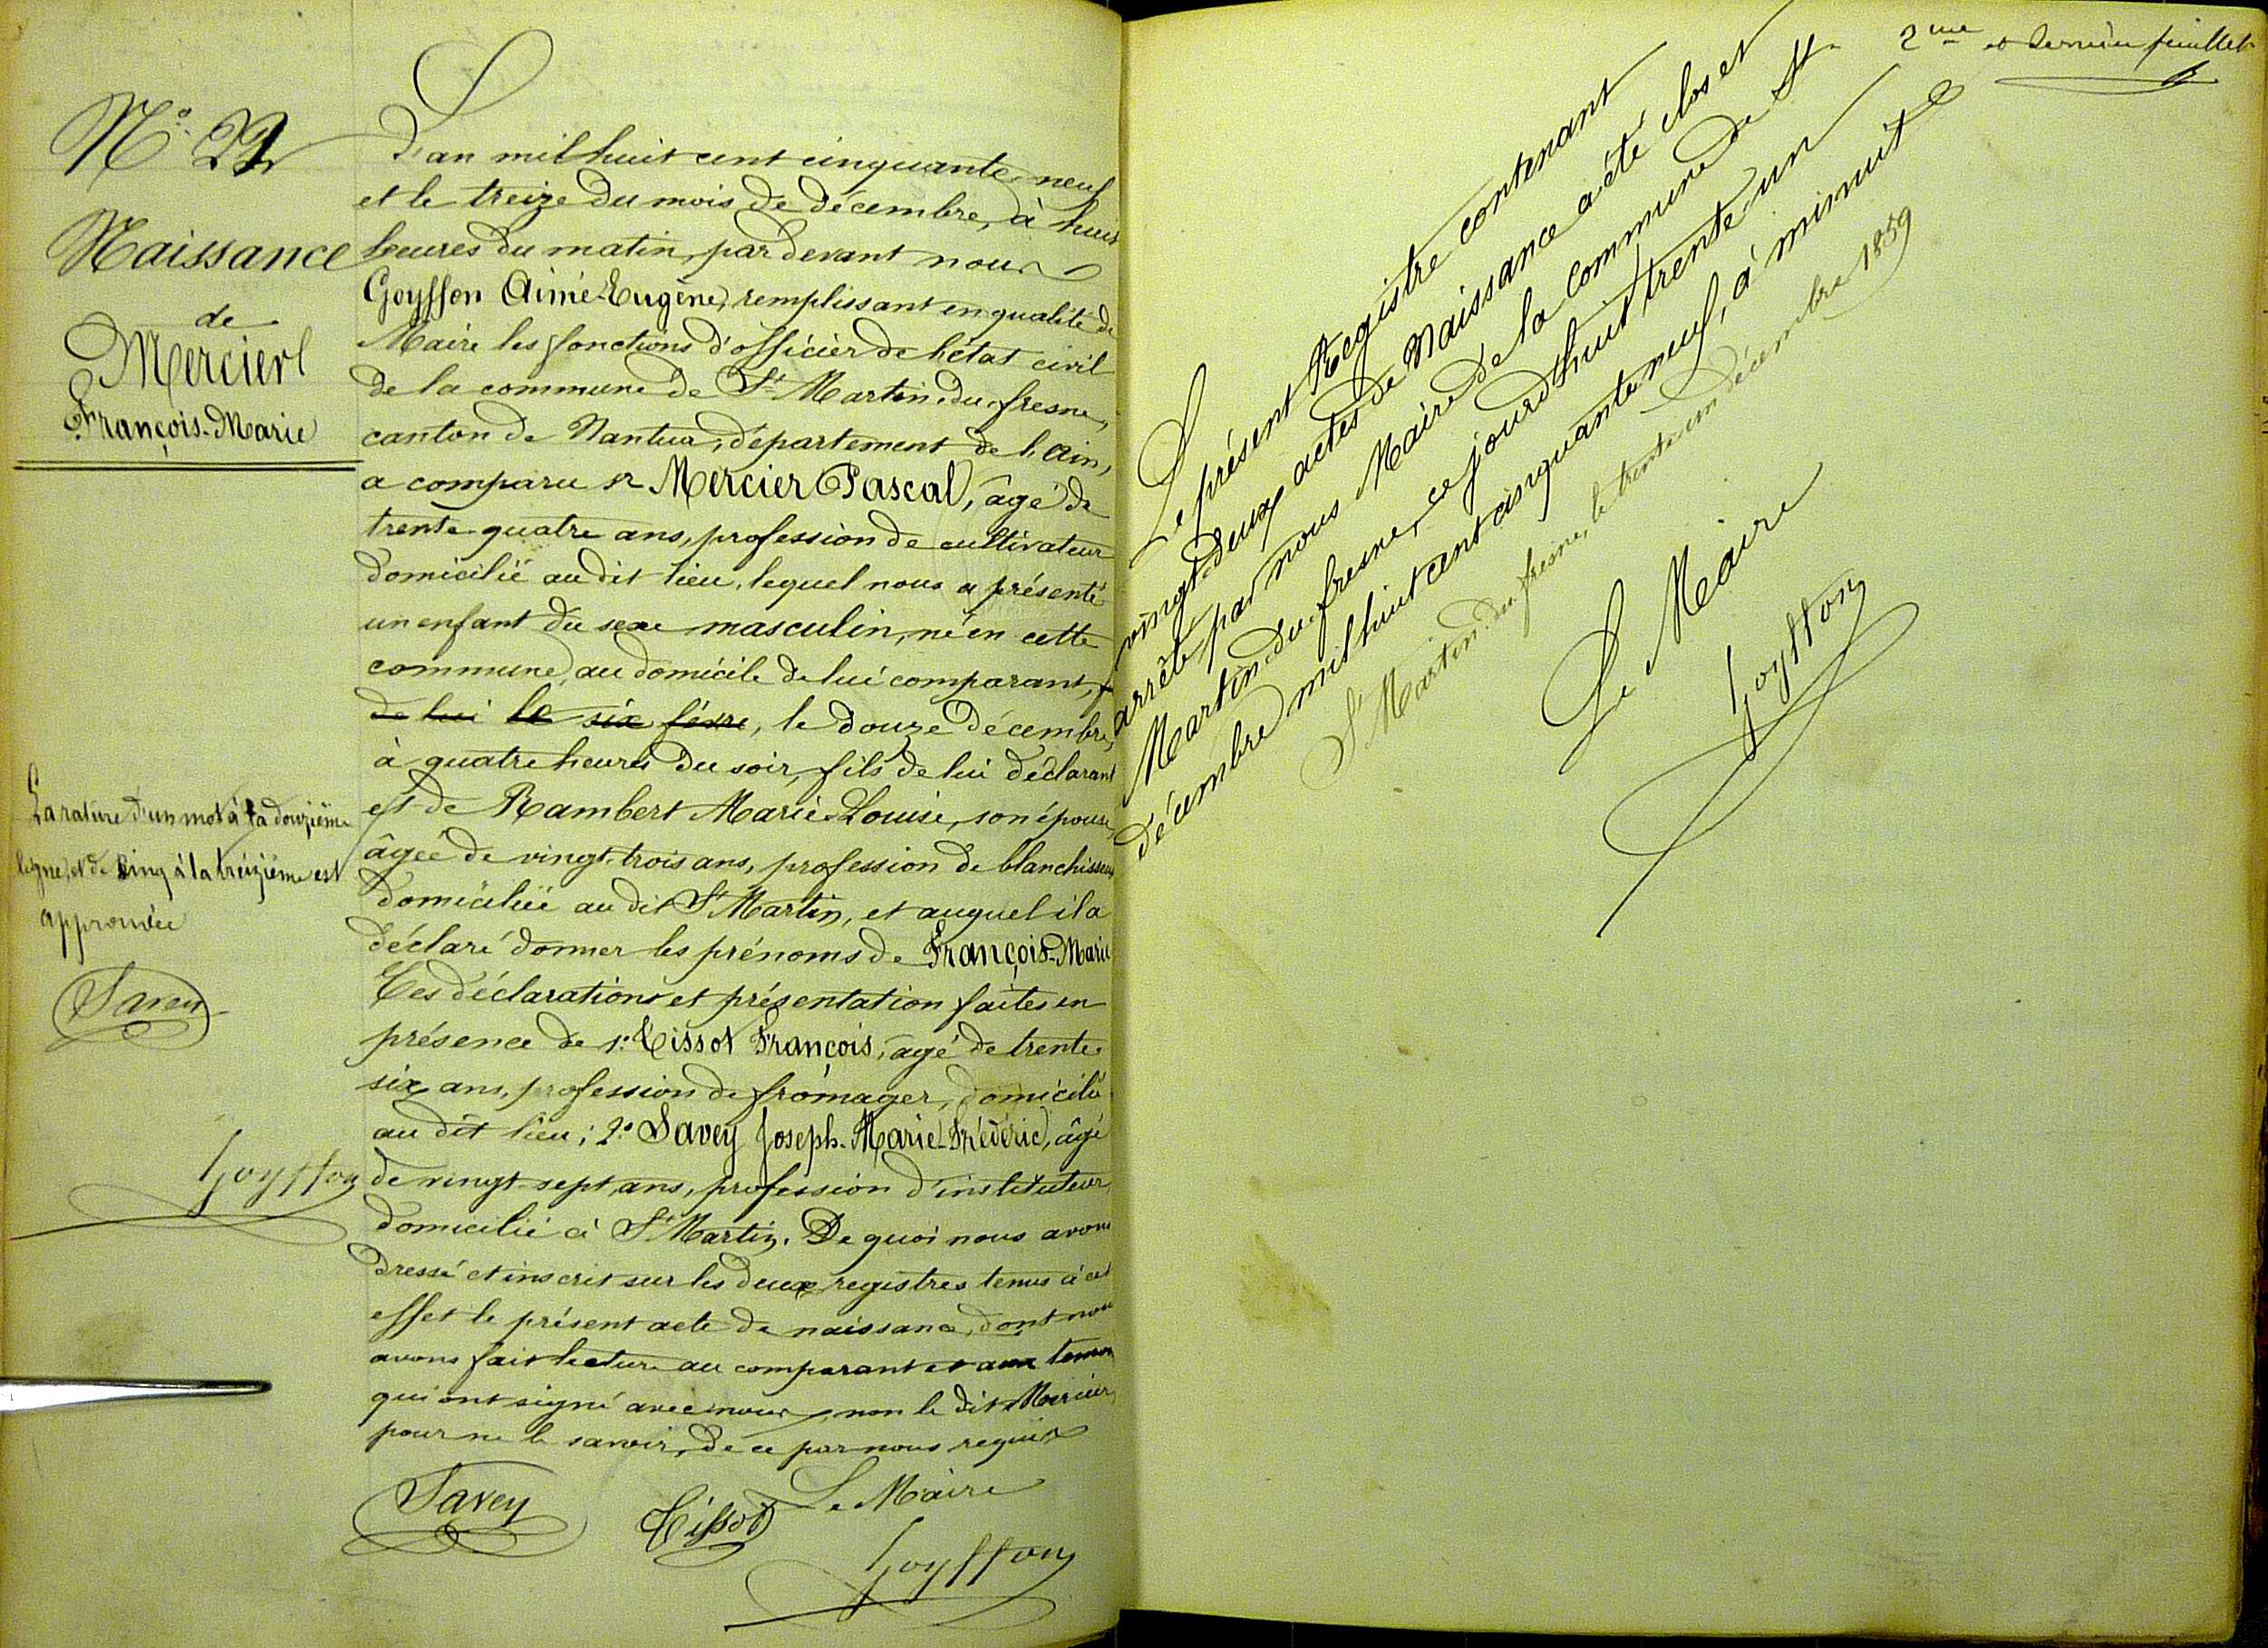 N° 22
Naissance
de
Mercier
François-Marie
L'an mil huit cent cinquante-neuf
et le treize du mois de décembre, à huit
heures du matin, par devant nous
Goyffon Aimé-Eugène, remplissant en qualité de
Maire les fonctions d'officier de l'état civil
de la commune de St Martin-du-fresne,
canton de Nantua, département de l'Ain,
a comparu sr Mercier Pascal, âgé de
trente-quatre ans, profession de cultivateur
domicilié au dit lieu, lequel nous a présenté
un enfant du sexe masculin, né en cette
commune, au domicile de lui comparant,
de lui le six, le douze décembre,
à quatre heures du soir, fils de lui déclarant
et de Rambert Marie-Louise, son épouse,
âgée de vingt-trois ans, profession de blanchisseuse
domiciliée au dit St Martin, et auquel il a
déclaré donner les prénoms de François-Marie
Ces déclarations et présentation faites en
présence de 1° Tissot François, âgé de trente-
six ans, profession de fromager, domicilié
au dit lieu; 2° Savey Joseph-Marie-Frédéric, âgé
de vingt-sept ans, profession d'instituteur,
domicilié à St Martin. De quoi nous avons
dressé et inscrit sur les deux registres tenus à cet
effet le présent acte de naissance, dont nous
avons fait lecture au comparant et aux témoins
qui ont signé avec nous, non le dit Mercier,
pour ne le savoir, de ce par nous requis
Le Maire
Savey
Tissot
Goyffon
La rature d'un mot à la douzième
ligne, et de cinq à la treizième est
approuvée
Savey
Goyffon
2me et dernier feuillet
Le présent Registre contenant
vingt-deux actes de Naissance a été clos et
arrêté par nous Maire de la commune de St-
Martin-du-fresne, ce jourd'huit trente un
décembre mil huit cent cinquante neuf, à minuit
St Martin-du-fresne, le trente un décembre 1859
Le Maire
Goyffon